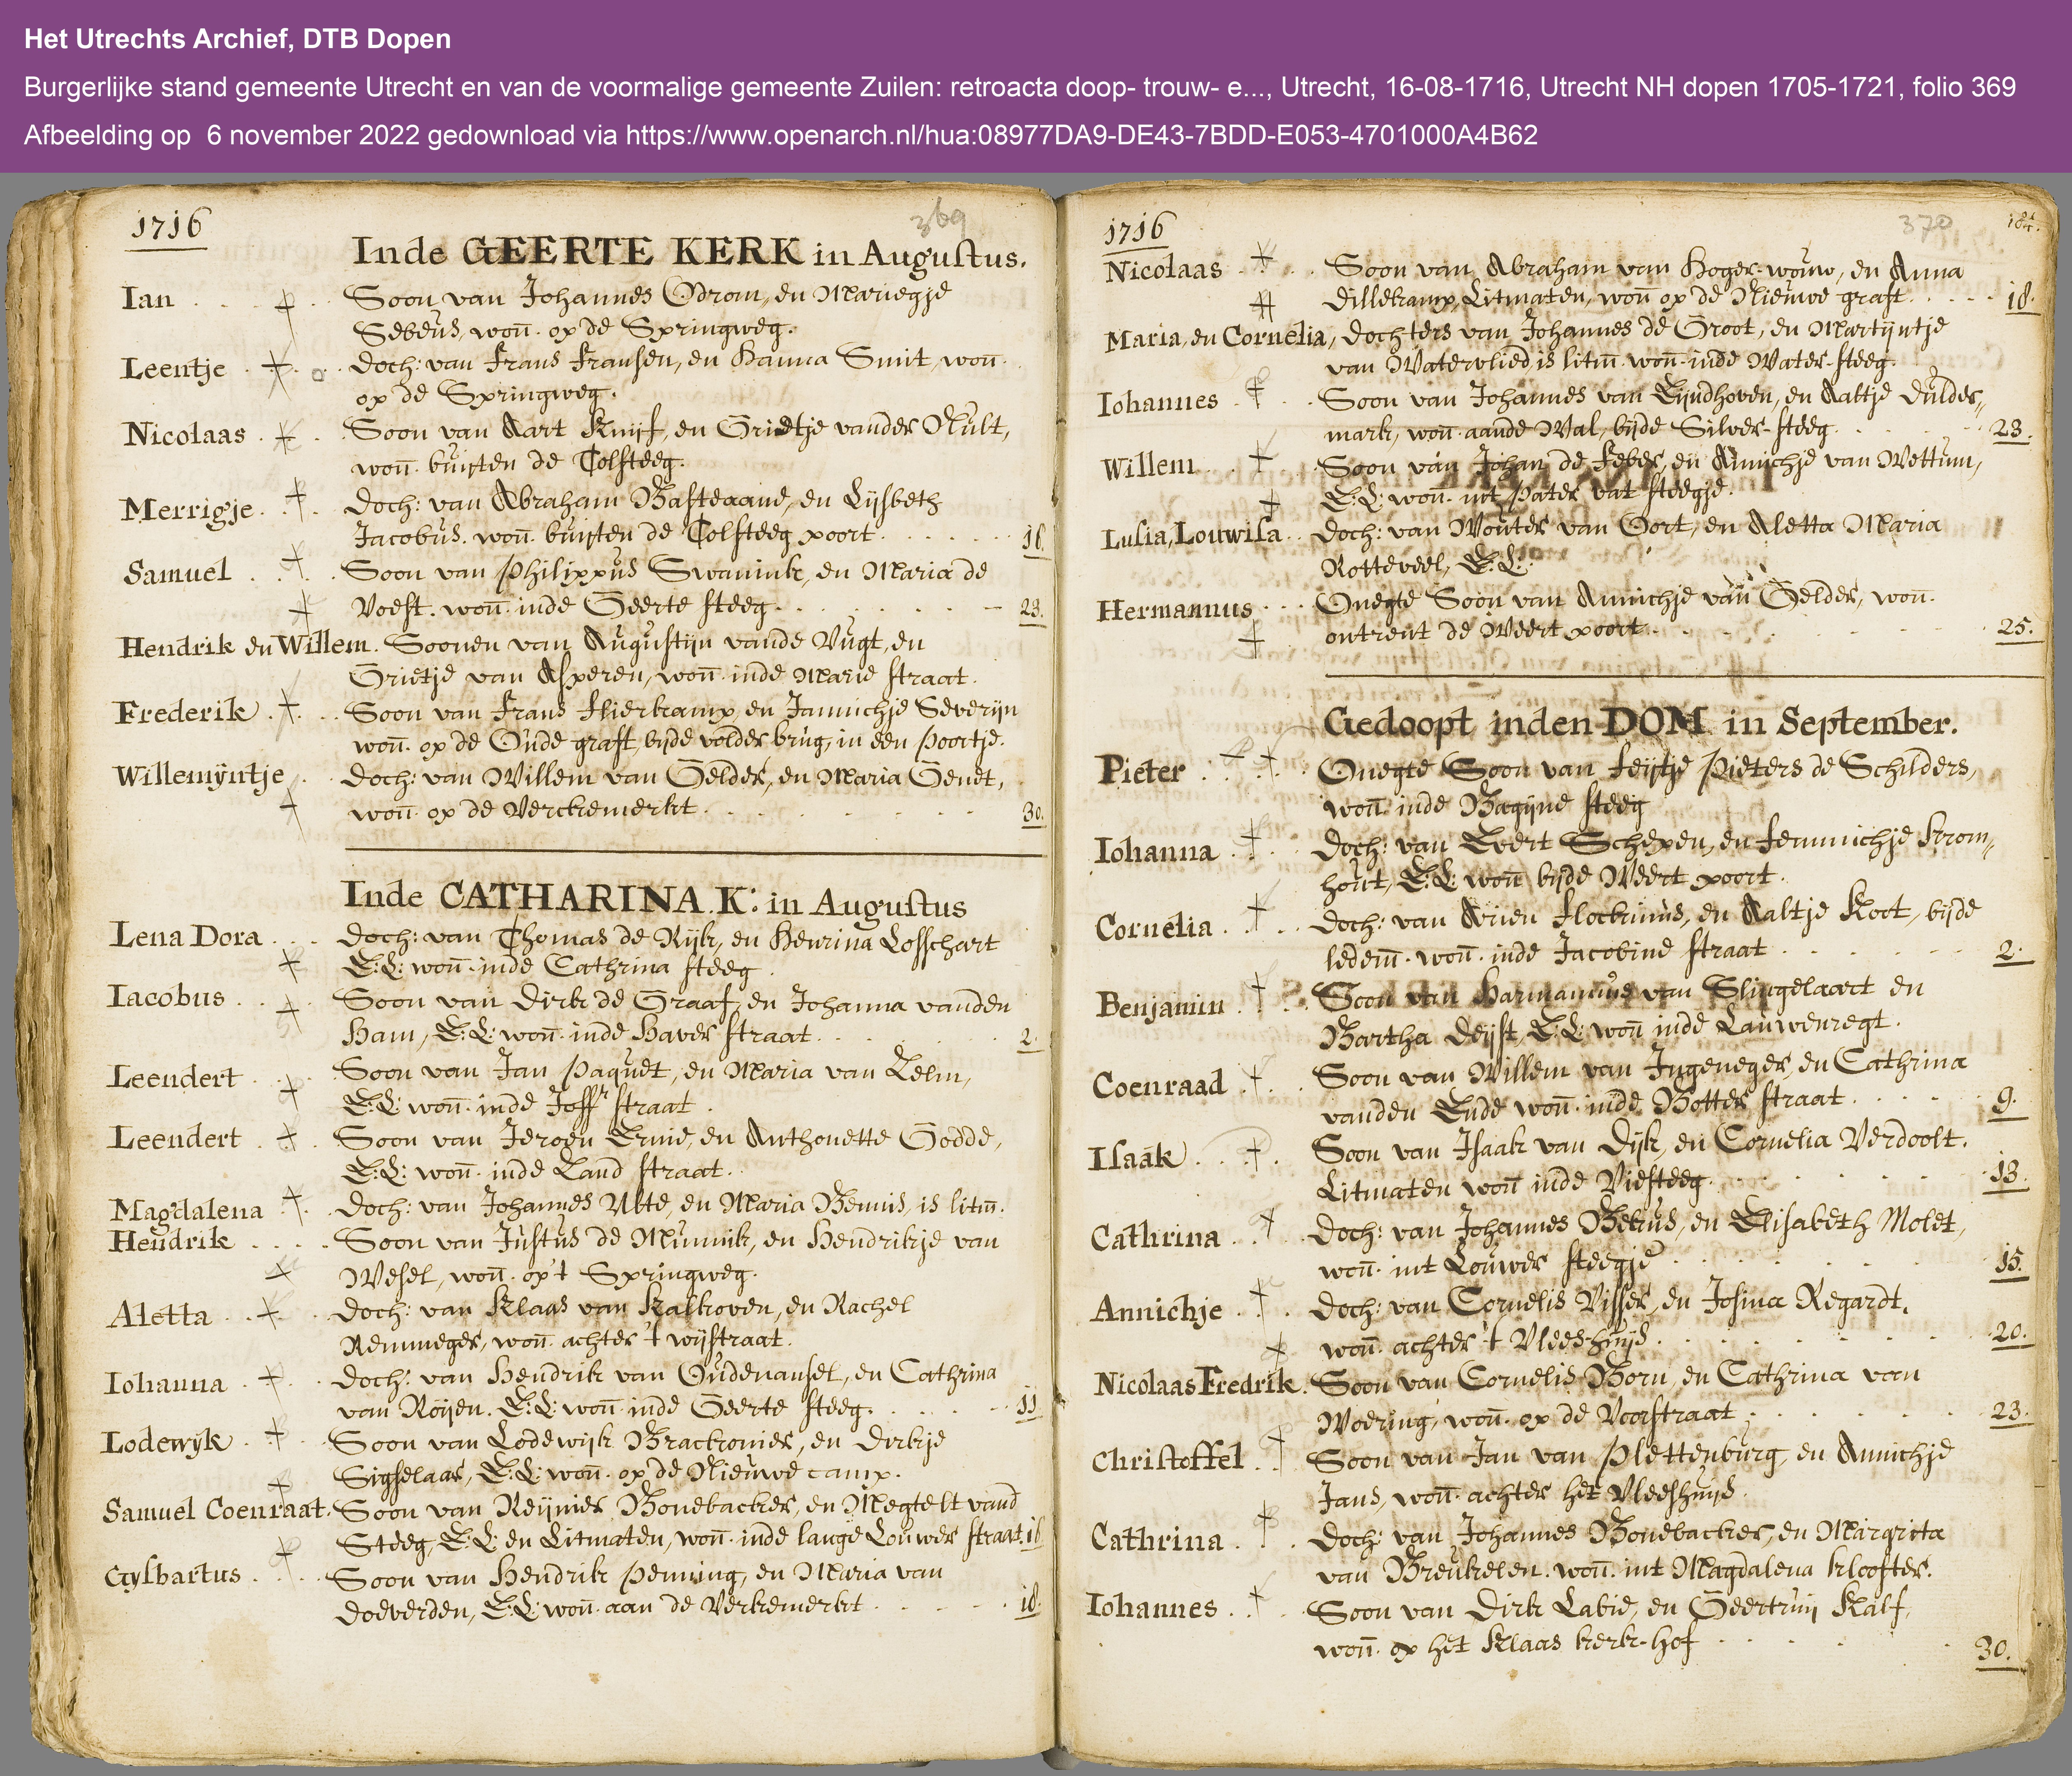 Het Utrechts Archief, DTB Dopen
Burgerlijke stand gemeente Utrecht en van de voormalige gemeente Zuilen: retroacta doop- trouw- e..., Utrecht, 16-08-1716, Utrecht NH dopen 1705-1721, folio 369
Afbeelding op 6 november 2022 gedownload via https://www.openarch.nl/hua:08977DA9-DE43-7BDD-E053-4701000A4B62
1716
369
Inde GEERTE KERK in Augustus.
Ian Soon van Johannes Odrom, en Mariegje
Sebeus, won. op de Springweg.
Leentje Doch: van Frans Fransen, en Hanna Smit, won.
op de Springweg.
Nicolaas Soon van Aart Knijf, en Grietje vander Nult,
won. buijten de Tolsteeg.
Merrigje Doch: van Abraham Basteaane, en Lijsbeth
Jacobus. won. buijten de Tolsteeg poort. 16.
Samuel Soon van Philippus Swanink, en Maria de
Voest. won. inde Geerte steeg. 23.
Hendrik en Willem. Soonen van Augustijn vande Vugt, en
Grietje van Asperen, won. inde Marie straat.
Frederik Soon van Frans Flierkamp, en Jannichje Severijn
won. op de Oude graft, bijde volder brug, in een Poortje.
Willemÿntje Doch: van Willem van Gelder, en Maria Genet,
won. op de Verckemerkt. 30.
Inde CATHARINA K: in Augustus
Lena Dora Doch: van Thomas de Rijk, en Henrina Losschart
E:L: won. inde Cathrina steeg.
Iacobus Soon van Dirk de Graaf, en Johanna vanden
Ham, E:L: won. inde Haver straat. 2.
Leendert Soon van Jan Paquet, en Maria van Lelm,
E:L: won. inde Joffr straat.
Leendert Soon van Jeroen Ernie, en Anthonette Godde,
E:L: won. inde Land straat.
Magdalena Doch: van Johannes Abte, en Maria Bennis, is litm.
Hendrik Soon van Justus de Munnik, en Hendrikje van
Wesel, won. op't Springweg.
Aletta Doch: van Klaas van Kalkoven, en Rachel
Remmeger, won. achter 't wijstraat.
Iohanna Doch: van Hendrik van Oudenansel, en Cathrina
van Roijen. E:L: won. inde Geerte steeg. 11
Lodewyk Soon van Lodewijk Brackonier, en Dirkje
Sigselaar, E:L: won. op de Nieuwe camp.
Samuel Coenraat. Soon van Reijnier Bonebacker, en Megtelt vand
Steeg, E:L: en Litmaten, won. inde lange Louwer straat. 16
Gysbartus Soon van Hendrik Penning, en Maria van
Doeverden, E:L: won. aan de Verkemerkt. 18.
1716
370
184.
Nicolaas Soon van Abraham van Hoger-wouw, en Anna
Dillekamp, Litmaten, won op de Nieuwe graft. 18.
Maria, en Cornelia, dochters van Johannes de Groot, en Martijntje
van Watervlied, is litm. won. inde Water-steeg.
Iohannes Soon van Johannes van Eijndhoven, en Aaltje Dulder„
mark, won. aande Wal, bijde Silver-steeg. 23.
Willem Soon van Johan de Feber, en Annichje van Wettum,
E:L: won. int Pater vat steegje.
Lusia, Louwisa Doch: van Wouter van Oort, en Aletta Maria
Rotteveel, E:L:
Hermannus Onegte Soon van Annichje van Gelder, won.
ontrent de Weert poort. 25.
Gedoopt inden DOM in September.
Pieter Onegte Soon van Feijtje Pieters de Schilders,
won. inde Bagijne steeg
Iohanna Doch: van Evert Schepen, en Femmichje Krom„
hout, E:L: won bijde Weert poort.
Cornelia Doch: van Arien Flockinus, en Aaltje Koot, bijde
ledem. won. inde Jacobine straat 2.
Benjamin Soon van Harmannus van Slingelaart en
Bartha Deijst, E:L: won inde Lauwenregt.
Coenraad Soon van Willem van Ingeneger, en Cathrina
vanden Ende won. inde Botter straat. 9.
Isaak Soon van Isaak van Dijk, en Cornelia Verdoolt.
Litmaten won inde Viesteeg. 13.
Cathrina Doch: van Johannes Bekus, en Elisabeth Molet,
won. int Louwer steegje 15.
Annichje Doch: van Cornelis Visser, en Josina Regardt.
won. achter 't Vlees-huijs. 20.
Nicolaas Fredrik. Soon van Cornelis Born, en Cathrina van
Woering, won. op de Voorstraat. 23.
Christoffel Soon van Jan van Plettenburg, en Annichje
Jans, won. achter het Vleeshuijs.
Cathrina Doch: van Johannes Bonebacker, en Margrita
van Breukelen. won. int Magdalena klooster.
Iohannes Soon van Dirk Labie, en Geertruij Kalf,
won. op het Klaas kerk-hof 30.